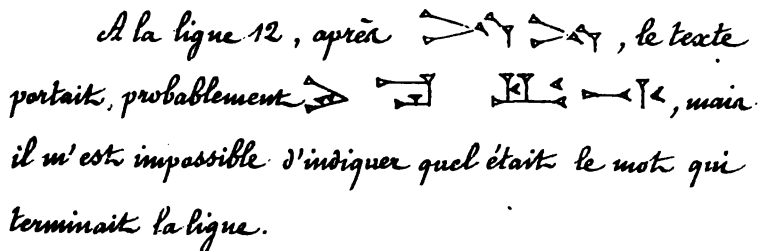 A la ligne 12, après , le texte
portait, probablement , mais
il m'est impossible d'indiquer quel était le mot qui
terminait la ligne.